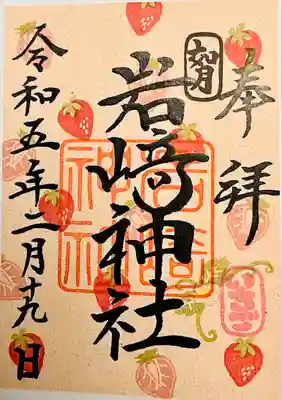 奉拝
岩崎神社
岩崎神社
いちご
令和五年二月十九日